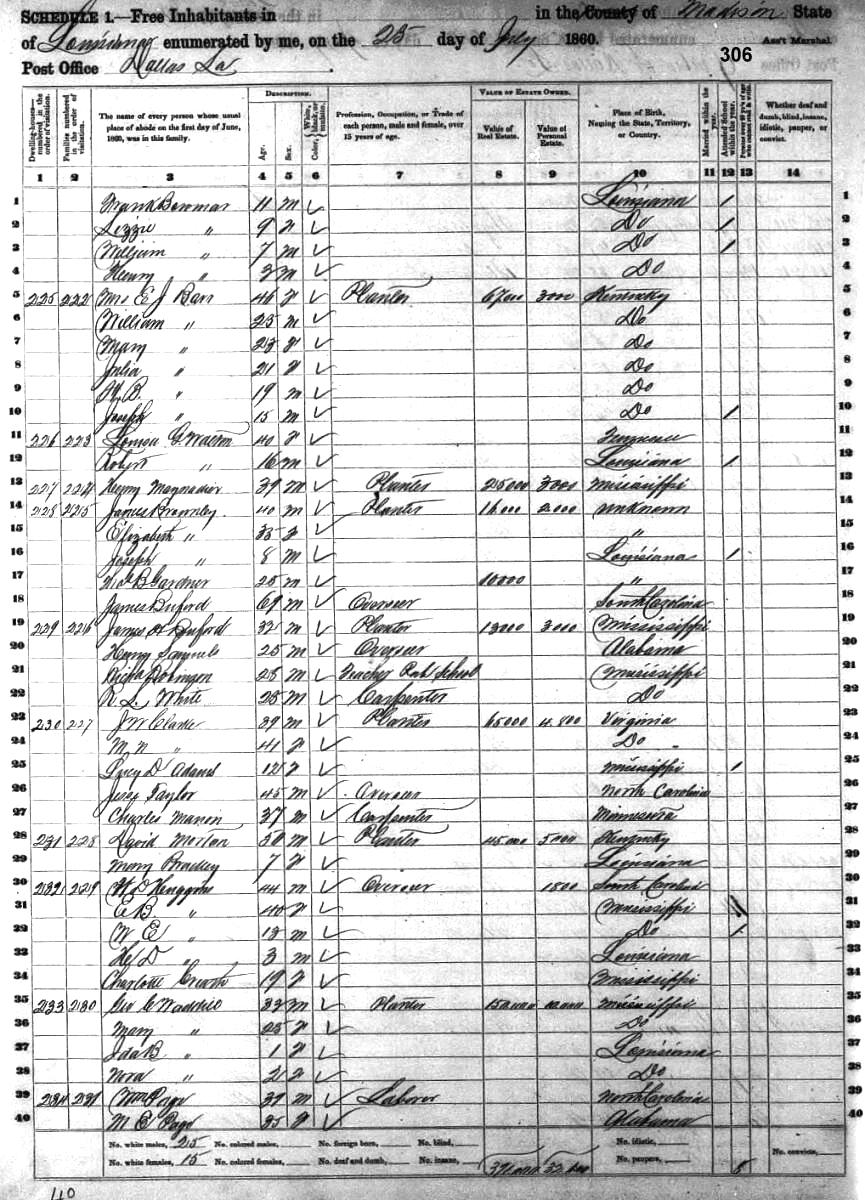 SCHEDULE 1.—Free Inhabitants in in the County of Madison State
of Louisiana enumerated by me, on the 25 day of July 1860. Ass't Marshal.
Post Office Dallas La 306
DESCRIPTION. VALUE OF ESTATE OWNED.
Dwelling-houses—numbered in the order of visitation. Families numbered in the order of visitation. The name of every person whose usual place of abode on the first day of June, 1860, was in this family. Age. Sex. Color, White, black, or mulatto. Profession, Occupation, or Trade of each person, male and female, over 15 years of age. Value of Real Estate. Value of Personal Estate. Place of Birth, Naming the State, Territory, or Country. Married within the year. Attended School within the year. Whether deaf and dumb, blind, insane, idiotic, pauper, or convict.
1 2 3 4 5 6 7 8 9 10 11 12 13 14
1 Mark Bowmar 11 m ✓ Louisiana / 1
2 Lizzie " 9 f ✓ Do / 2
3 William " 7 m ✓ Do / 3
4 Henry " 3 m ✓ Do 4
5 225 222 Mrs E J Barr 46 f ✓ Planter 67000 3000 Kentucky 5
6 William " 25 m ✓ Do 6
7 Mary " 23 f ✓ Do 7
8 Julia " 21 f ✓ Do 8
9 B. " 19 m ✓ Do 9
10 Joseph " 15 m ✓ Do / 10
11 226 223 40 f ✓ Tennessee 11
12 Robert " 16 m ✓ Louisiana / 12
13 227 224 Henry Maynadier 39 m ✓ Planter 25000 3000 Mississippi 13
14 228 225 James Brownley 40 m ✓ Planter 16000 2000 unknown 14
15 Elizabeth " 35 f ✓ " 15
16 Joseph " 8 m ✓ Louisiana / 16
17 B Gardner 25 m ✓ 10000 " 17
18 James Buford 69 m ✓ Overseer South Carolina 18
19 229 226 James Buford 32 m ✓ Planter 13000 3000 Mississippi 19
20 Henry Samuels 25 m ✓ Overseer Alabama 20
21 Robinson 25 m ✓ Teacher Pub School Mississippi 21
22 R. L. White 25 m ✓ Carpenter Do 22
23 230 227 J W Clarke 39 m ✓ Planter 65000 4.800 Virginia 23
24 M N " 41 f ✓ Do 24
25 Lucy D Adams 12 f ✓ Mississippi / 25
26 Jesse Taylor 45 m ✓ Overseer North Carolina 26
27 Charles Manon 37 m ✓ Carpenter Minnesota 27
28 231 228 David Morton 50 m ✓ Planter 45000 5000 Kentucky 28
29 Mary Bradley 7 f ✓ Louisiana 29
30 232 229 W D 44 m ✓ Overseer 1800 South Carolina 30
31 E B. " 40 f ✓ Mississippi 31
32 W E " 13 m ✓ Do / 32
33 D " 3 m ✓ Louisiana 33
34 Charlotte 19 f ✓ Mississippi 34
35 233 230 Geo C Waddill 33 m ✓ Planter 150000 10000 Mississippi 35
36 Mary " 25 f ✓ Do 36
37 Ida B " 1 f ✓ Louisiana 37
38 Nora " 2 f ✓ Do 38
39 234 231 Wm Page 39 m ✓ Laborer North Carolina 39
40 M E Page 35 f ✓ Alabama 40
No. white males, 25 No. colored males, No. foreign born, No. blind, No. idiotic,
No. white females, 15 No. colored females, No. deaf and dumb, No. insane, No. paupers, 8 No. convicts,
40